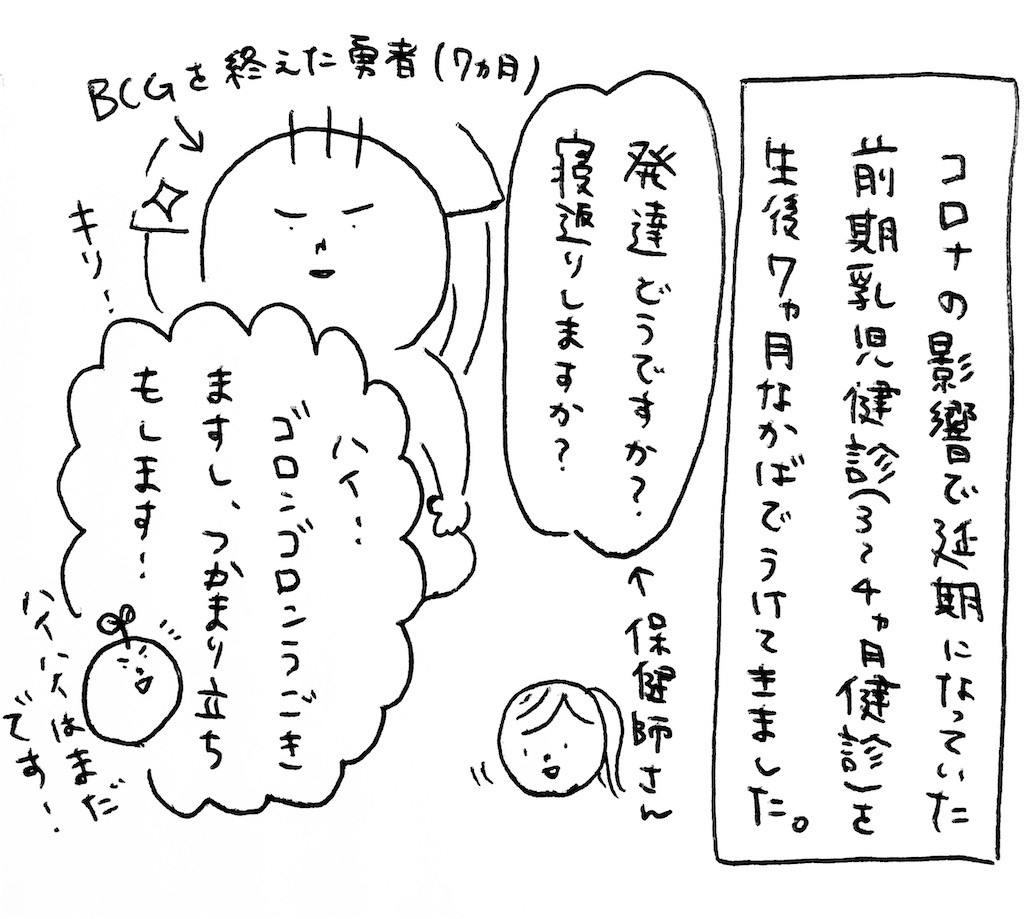 コロナの影響で延期になっていた
前期乳児健診(3〜4ヵ月健診)を
生後7ヵ月なかばでうけてきました。
発達どうですか?
寝返りしますか?
←保健師さん
BCGを終えた勇者(7ヵ月)
キリ!
ハイ!
ゴロンゴロンうごき
ますし、つかまり立ち
もします!
ハイハイはまだ
です!